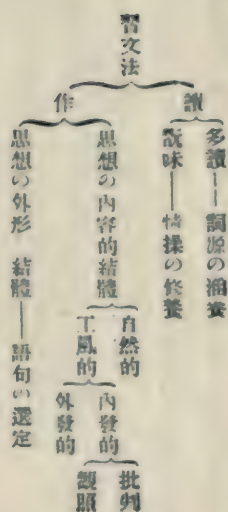 習文法
讀
多讀――詞源の涵養
翫味――情操の修養
作
思想の內容的結體
自然的
工風的
內發的
批判
觀照
外發的
思想の外形 結體――語句の選定